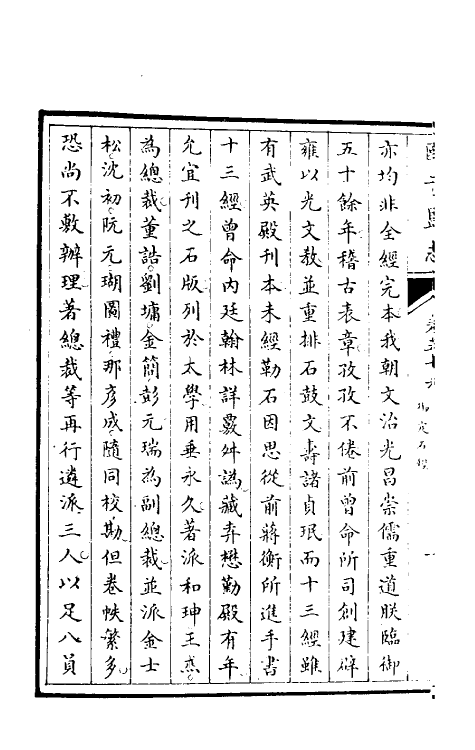 亦均非全經完本我朝文治光昌崇儒重道朕臨御
五十餘年稽古表章孜孜不倦前曾命所司創建辟
雍以光文教並重排石鼓文壽諸貞珉而十三經雖
有武英殿刊本未經勒石因思從前蔣衡所進手書
十三經曾命內廷翰林詳覈舛譌藏弆懋勤殿有年
允宜刊之石版列於太學用垂永久著派和珅王杰
為總裁董誥劉墉金簡彭元瑞為副總裁並派金士
松沈初阮元瑚圖禮那彥成隨同校勘但卷帙繁多
恐尚不敷辦理著總裁等再行遴派三人以足八員